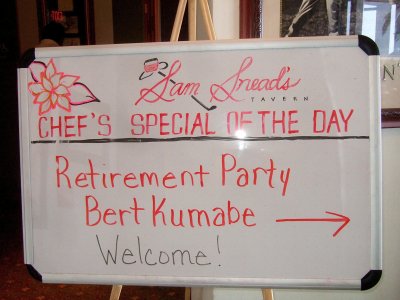 Sam Snead's
TAVERN
CHEF'S SPECIAL OF THE DAY
Retirement Party
Bert Kumabe
Welcome!